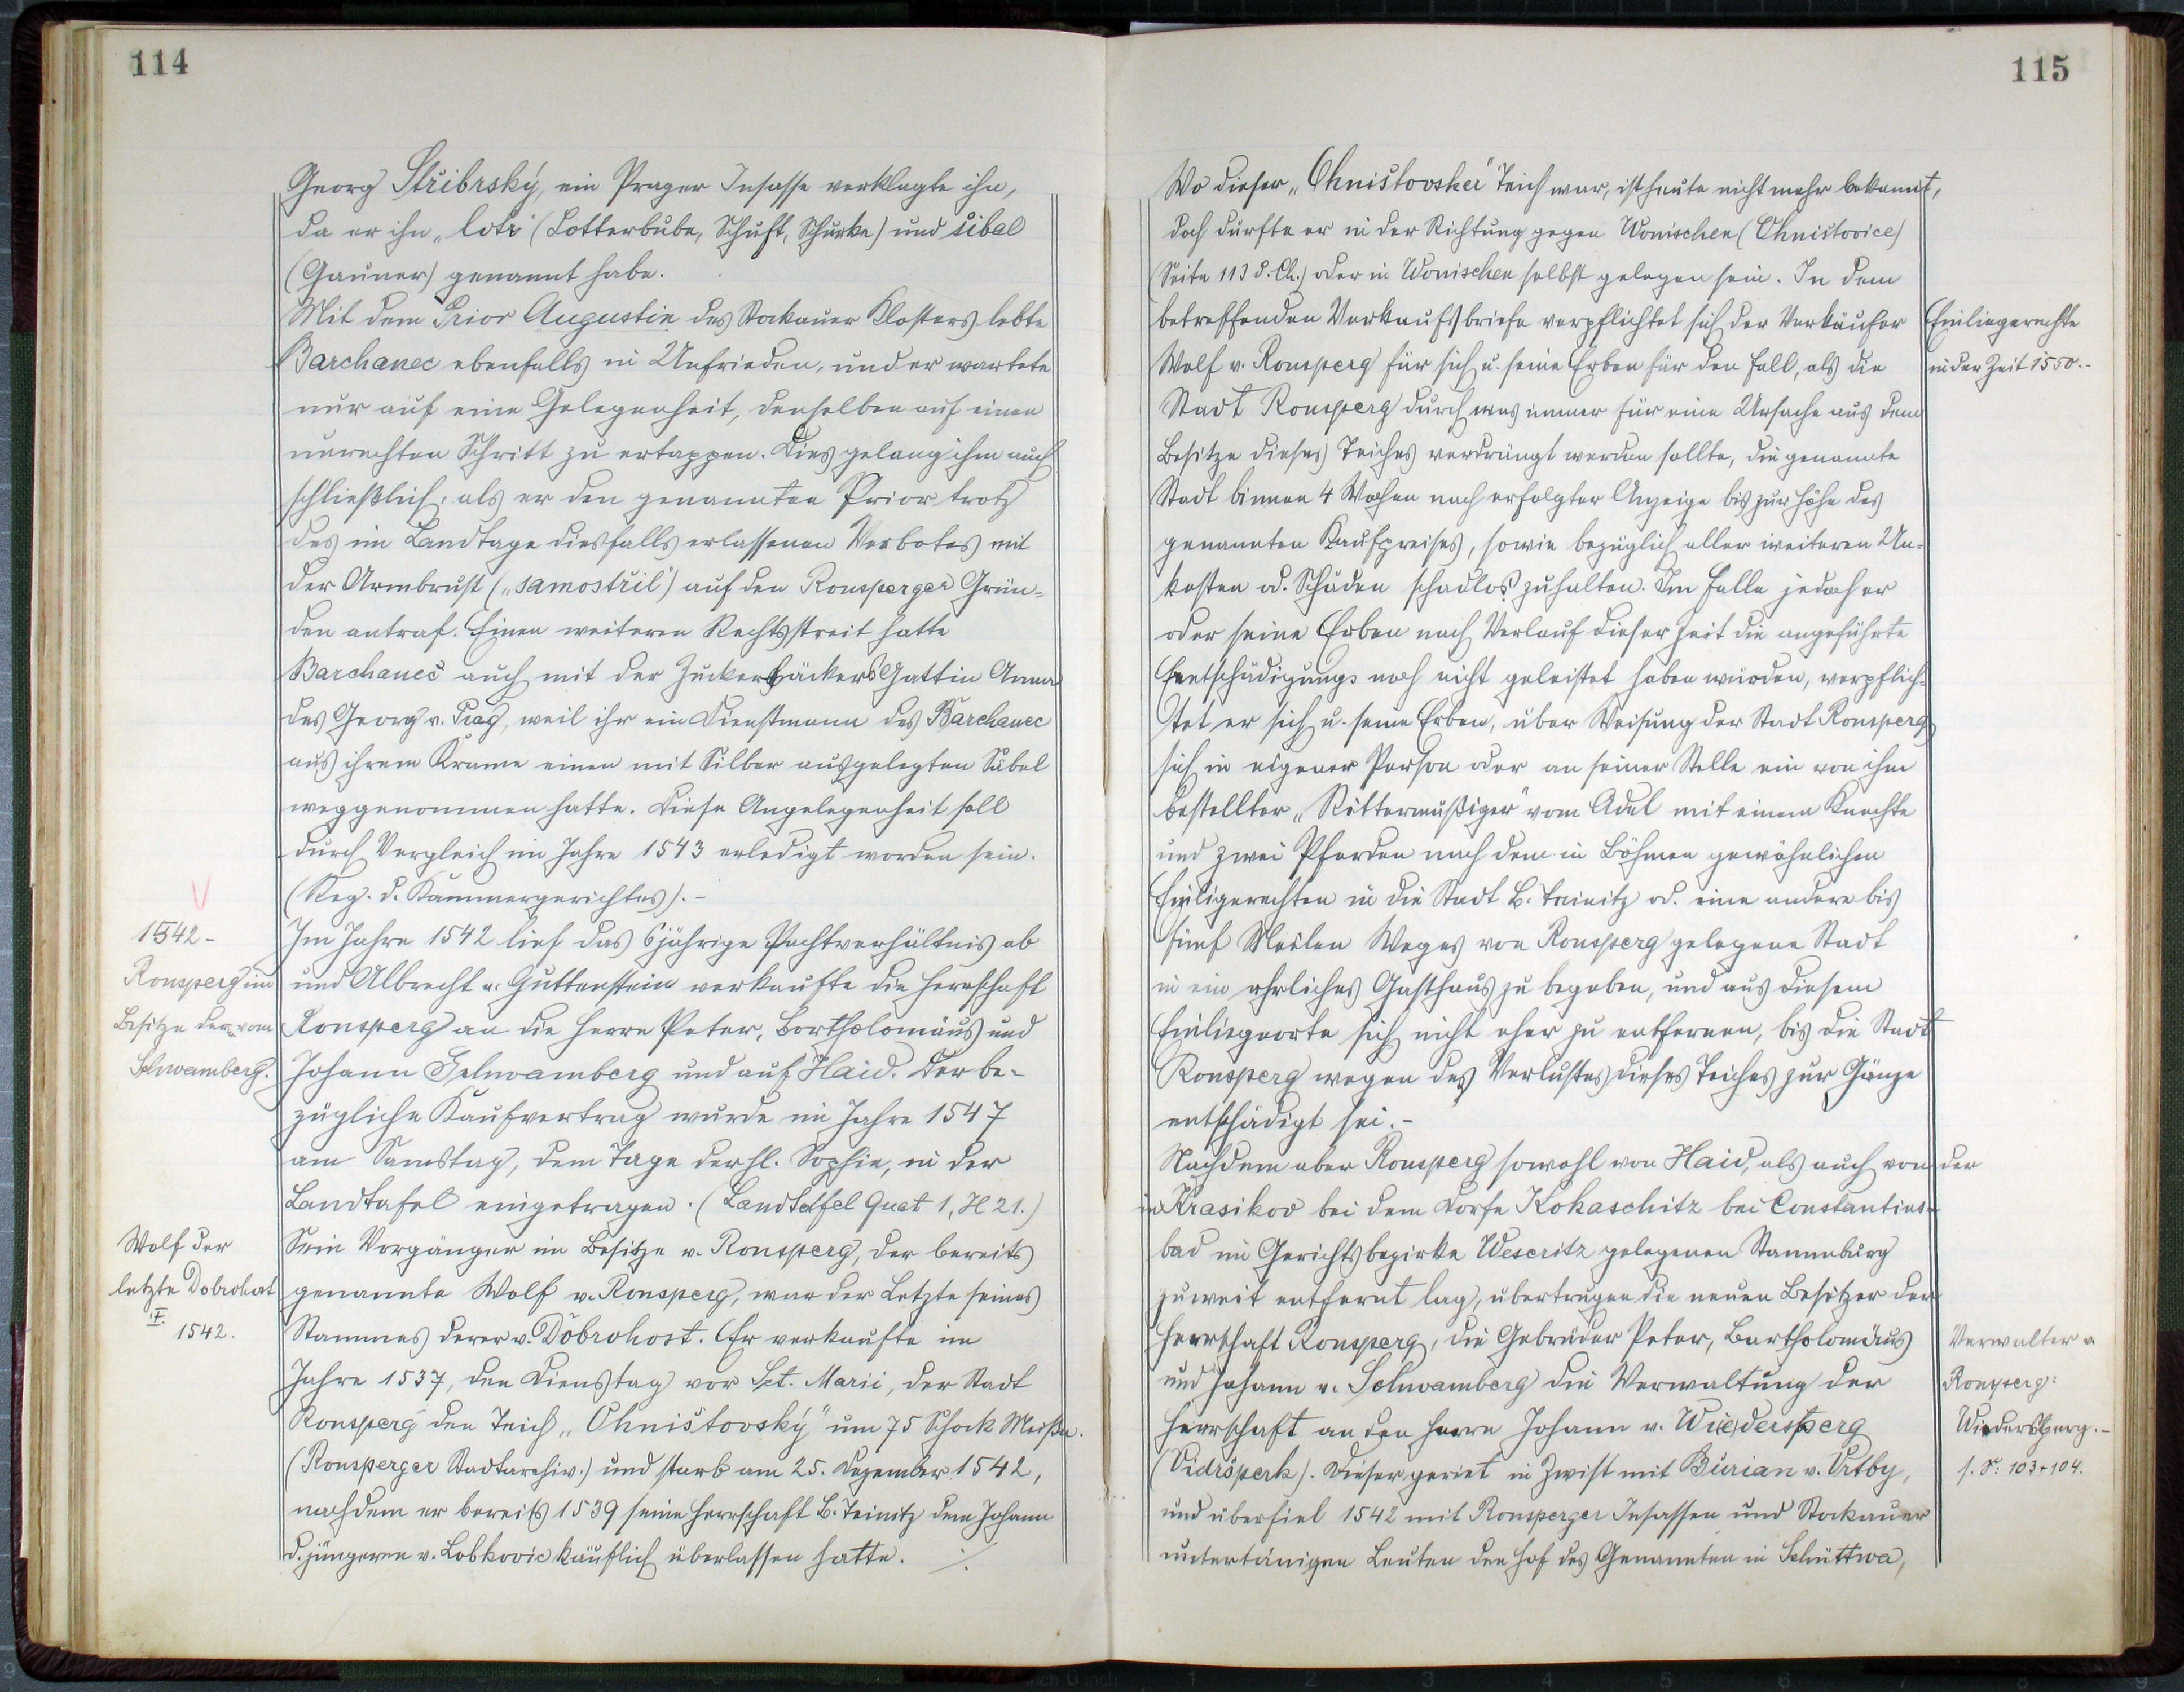 114
Georg Stříbrský, ein Prager Insasse verklagte ihn,
da er ihn „lotr" (Lotterbube, Schuft, Schurke) und šibal
(Gauner) genannt habe.
Mit dem Prior Augustin des Stockauer Klosters lebte
Barchanec ebenfalls in Unfrieden, und er wartete
nur auf eine Gelegenheit, denselben auf einen
unrechten Schritt zu ertappen. Dies gelang ihm auch
schließlich, als er den genannten Prior trotz
des im Landtage diesfalls erlassenen Verbotes mit
der Armbrust („samostříl") auf den Ronsperger Grün-
den antraf. Einen weiteren Rechtsstreit hatte
Barchanec auch mit der Zuckerbäckers Gattin Anna
des Georg v. Prag, weil ihr ein Dienstmann des Barchanec
aus ihrem Krame einen mit Silber ausgelegten Säbel
weggenommen hatte. Diese Angelegenheit soll
durch Vergleich im Jahre 1543 erledigt worden sein.
(Reg. d. Kammergerichtes).-
1542-
Ronsperg im
Besitze der vom
Schwamberg.
Im Jahre 1542 lief das 6jährige Pachtverhältnis ab
und Albrecht v. Guttenstein verkaufte die Herrschaft
Ronsperg an die Herrn Peter, Bartholomäus und
Johann Schwamberg und auf Haid. Der be-
zügliche Kaufvertrag wurde im Jahre 1547
am Samstag, dem Tage der hl. Sophie, in der
Landtafel eingetragen. (Landtafel Quat 1, H 21.)
Wolf der
letzte Dobrohost
†
1542.
Sein Vorgänger im Besitze v. Ronsperg, der bereits
genannte Wolf v. Ronsperg, war der Letzte seines
Stammes derer v. Dobrohost. Er verkaufte im
Jahre 1537, den Dienstag vor Sct. Marii, der Stadt
Ronsperg den Teich „Ohništovský" um 75 Schock Meißn.
(Ronsperger Stadtarchiv.) und starb am 25. Dezember 1542,
nachdem er bereits 1539 seine Herrschaft B. Teinitz dem Johann
d. jüngeren v. Lobkovic käuflich überlassen hatte. ./.
115
Wo dieser „Ohništovsker" Teich war, ist heute nicht mehr bekannt,
doch dürfte er in der Richtung gegen Wonischen (Ohnistovice)
(Seite 113 d. Ch.) oder in Wonischen selbst gelegen sein. In dem
betreffenden Verkaufsbriefe verpflichtet sich der Verkäufer
Wolf v. Ronsperg für sich u. seine Erben für den Fall, als die
Stadt Ronsperg durch was immer für eine Ursache aus dem
Besitze dieses Teiches verdrängt werden sollte, die genannte
Stadt binnen 4 Wochen nach erfolgter Anzeige bis zur Höhe des
genannten Kaufpreises, sowie bezüglich aller weiteren Un-
kosten od. Schäden schadlos zuhalten. Im Falle jedoch er
oder seine Erben nach Verlauf dieser Zeit die angeführte
Entschädigung noch nicht geleistet haben würden, verpflich-
tet er sich u. seine Erben, über Weisung der Stadt Ronsperg
sich in eigener Person oder an seiner Stelle ein von ihm
bestellter „Rittermäßiger" vom Adel mit einem Knechte
und zwei Pferden nach dem in Böhmen gewöhnlichen
Einligerechten in die Stadt B. Teinitz od. eine andere bis
fünf Meilen Weges von Ronsperg gelegene Stadt
in ein ehrliches Gasthaus zu begeben, und aus diesem
Einliegeorte sich nicht eher zu entfernen, bis die Stadt
Ronsperg wegen des Verlustes dieses Teiches zur Gänze
entschädigt sei.-
Einliegerechte
in der Zeit 1550.-
Nachdem aber Ronsperg sowohl von Haid, als auch von der
in Krasikov bei dem Dorfe Kokaschitz bei Constantins-
bad im Gerichtsbezirke Weseritz gelegenen Stammburg
zuweit entfernt lag, übertrugen die neuen Besitzer der
Herrschaft Ronsperg, die Gebrüder Peter, Bartholomäus
und Johann v. Schwamberg die Verwaltung der
Herrschaft an den Herrn Johann v. Wi(e)dersperg
(Vidršperk). Dieser geriet in Zwist mit Burian v. Vrtby,
und überfiel 1542 mit Ronsperger Insassen und Stockauer
untertänigen Leuten den Hof des Genannten in Schüttwa,
Verwalter v.
Ronsperg:
Widersperg.-
s. S: 103+104.